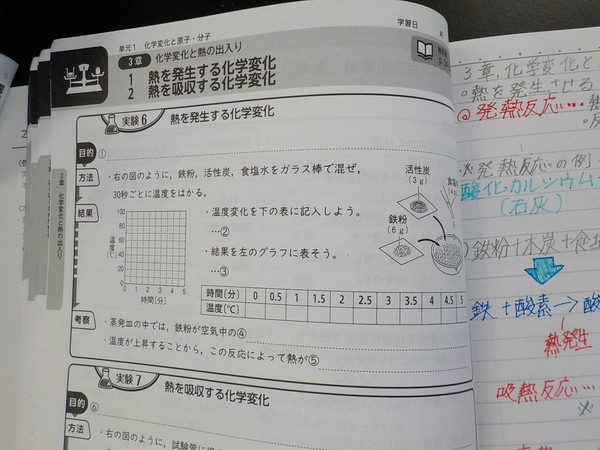 学習日
月
単元1 化学変化と原子・分子
3章 化学変化と熱の出入り
1 熱を発生する化学変化
2 熱を吸収する化学変化
実験6 熱を発生する化学変化
目的 ①
方法 ・右の図のように，鉄粉，活性炭，食塩水をガラス棒で混ぜ，
30秒ごとに温度をはかる。
活性炭
(3g)
鉄粉
(6g)
結果
・温度変化を下の表に記入しよう。
…②
・結果を左のグラフに表そう。
…③
温度〔℃〕
100
80
60
40
20
0
0 1 2 3 4 5
時間〔分〕
時間〔分〕 0 0.5 1 1.5 2 2.5 3 3.5 4 4.5 5
温度〔℃〕
考察 ・蒸発皿の中では，鉄粉が空気中の④
・温度が上昇することから，この反応によって熱が⑤
実験7 熱を吸収する化学変化
目的 ⑥
方法 ・右の図のように，試験管に
3章 化学変化と熱の出入り
3章，化学変化と
熱を発生させる
発熱反応…
※発熱反応の例
酸化カルシウム
(石灰)
鉄粉＋木炭＋食塩
鉄＋酸素→酸
熱発生
吸熱反応…
※